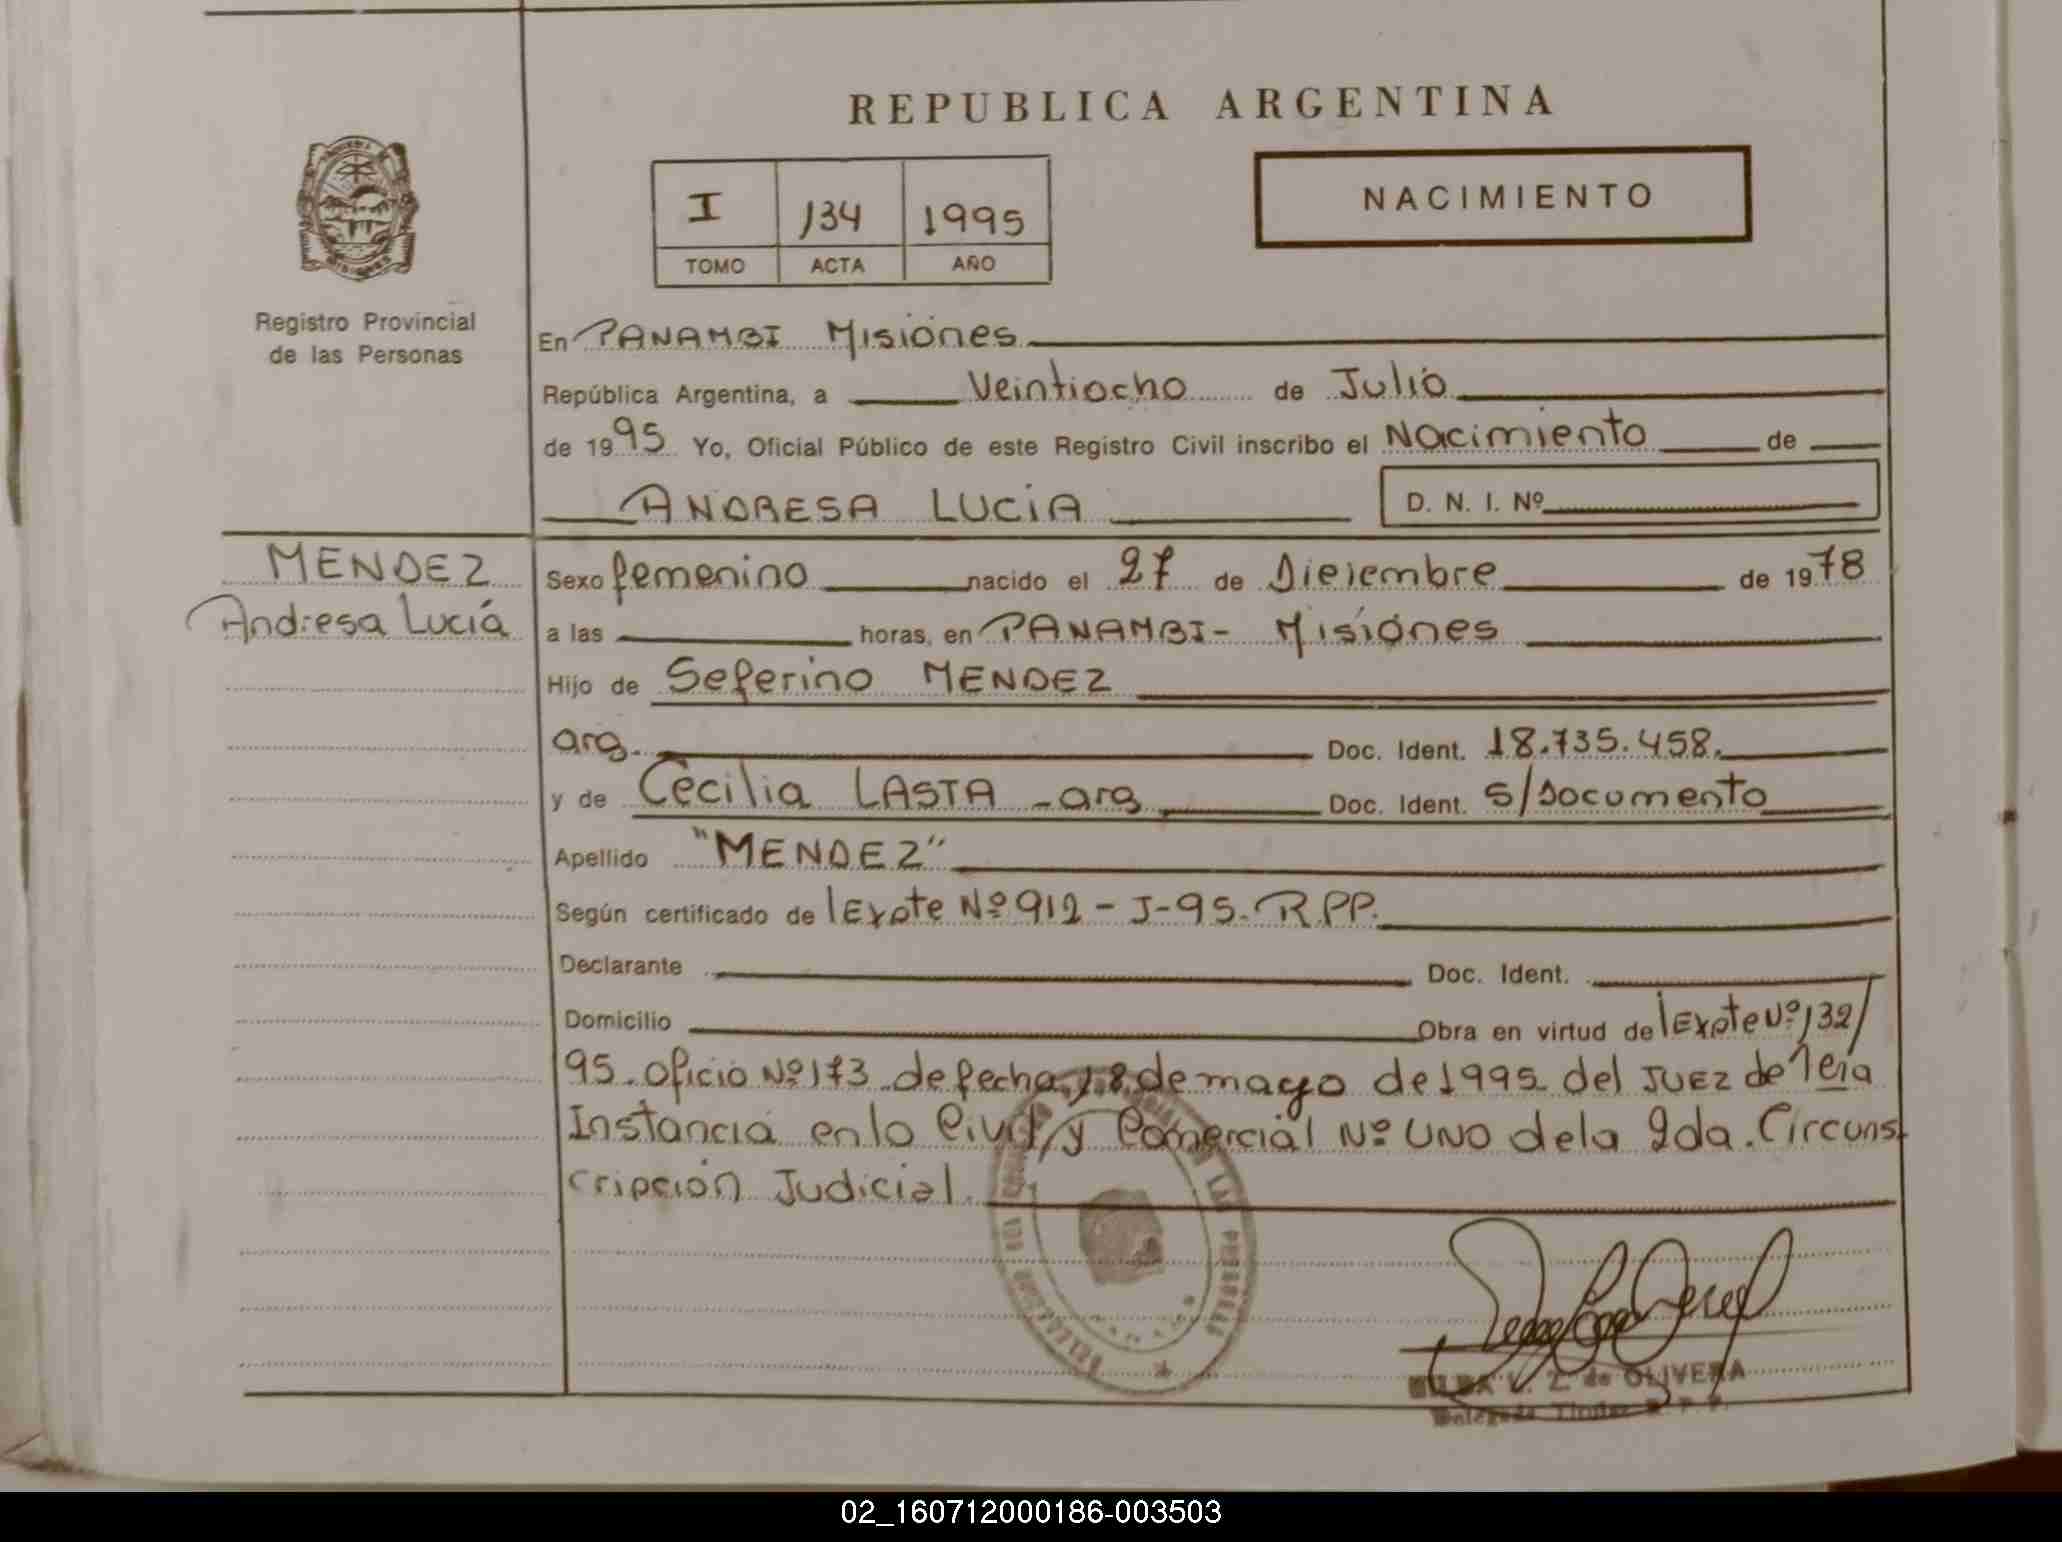 REPUBLICA ARGENTINA
I 134 1995
TOMO ACTA AÑO
NACIMIENTO
Registro Provincial
de las Personas
En PANAMBI Misiones
República Argentina, a Veintiocho de Julio
de 1995 Yo, Oficial Público de este Registro Civil inscribo el Nacimiento de
ANDRESA LUCIA D. N. I. Nº
MENDEZ
Andresa Lucía
Sexo femenino nacido el 27 de Diciembre de 1978
a las horas, en PANAMBI- Misiones
Hijo de Seferino MENDEZ
arg. Doc. Ident. 18.735.458.
y de Cecilia LASTA - arg Doc. Ident. s/Documento
Apellido "MENDEZ"
Según certificado de Expte Nº 912 - J-95. R.PP.
Declarante Doc. Ident.
Domicilio Obra en virtud de Expte Nº 132/
95. oficio Nº 173 de fecha 18 de mayo de 1995 del JUEZ de 1era
Instancia en lo Civil y Comercial Nº UNO de la 2da. Circuns
cripción Judicial.
L. Z. de OLIVERA
Delegada Titular R. P. P.
02_160712000186-003503